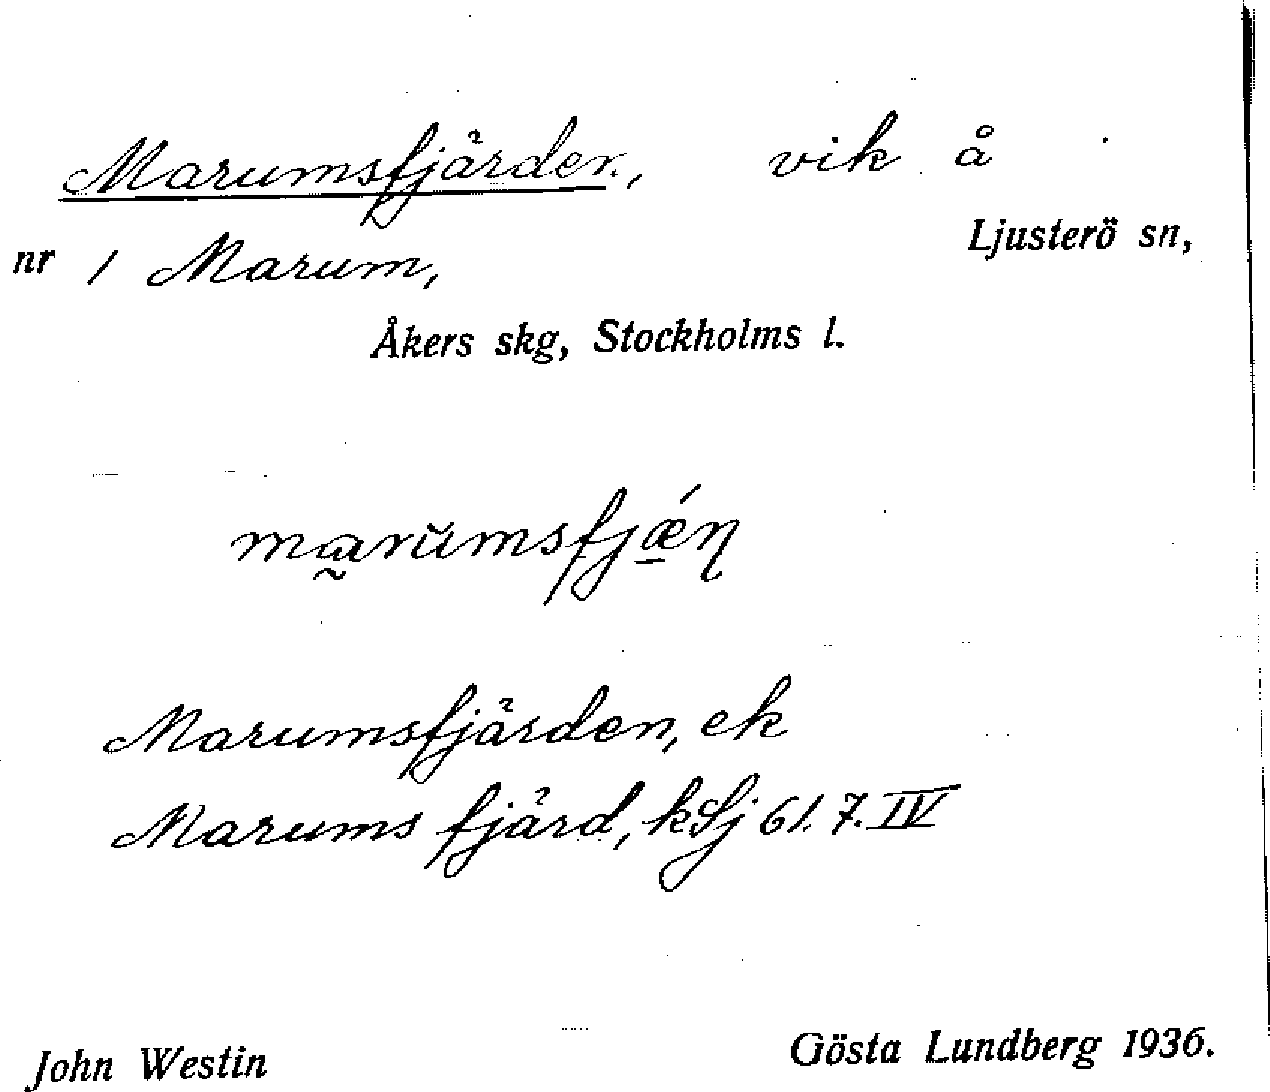 Marumsfjärden, vik å
Ljusterö sn,
nr 1 Marum,
Åkers skg, Stockholms l.
ma̰rŭmsfjǽ̠ɳ
Marumsfjärden, ek
Marums fjärd, kSj 61. 7. IV
John Westin
Gösta Lundberg 1936.